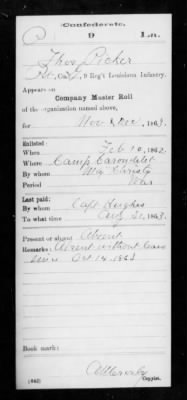 Confederate.
9 La.
Thos Picker
Pvt, Co. , 9 Reg't Louisiana Infantry.
Appears on
Company Muster Roll
of the organization named above,
for Nov & Dec, 1863.
Enlisted:
When Feb 10, 1862
Where Camp Carondelet
By whom Maj Christy
Period War
Last paid:
By whom Capt Hughes
To what time Aug 31, 1863.
Present or absent Absent
Remarks: Absent without leave
since Oct 14 1863
Book mark:
(642) Copyist.